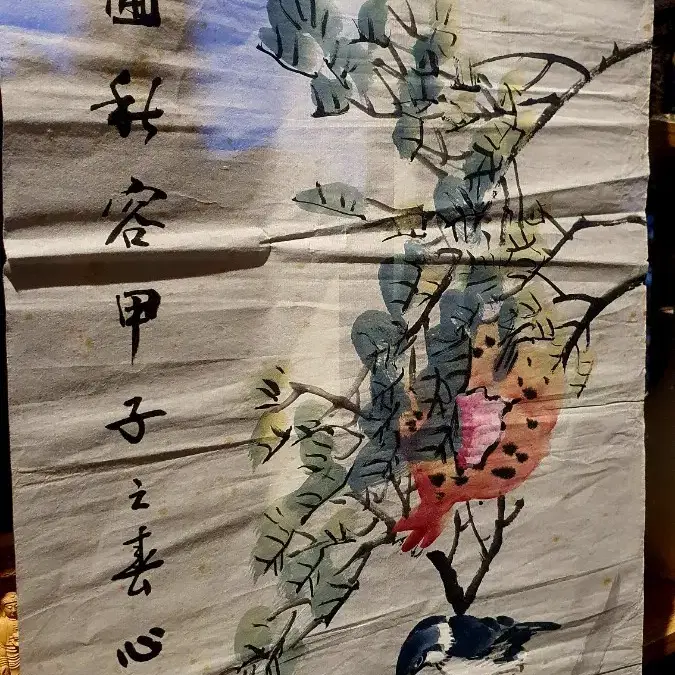 圃秋容甲子之春心